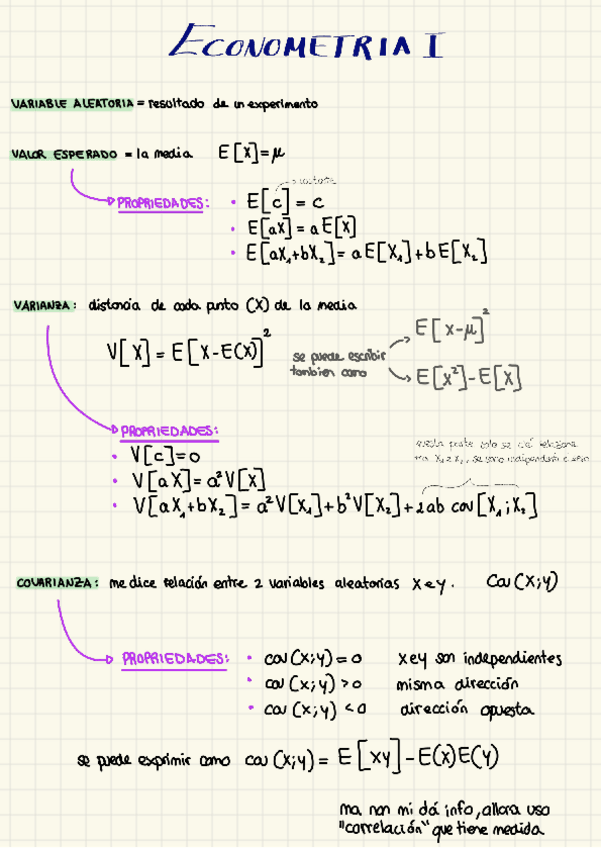 ECONOMETRIA I
VARIABLE ALEATORIA = resultado de un experimento
VALOR ESPERADO = la media E[X]=μ
PROPRIEDADES:
constante
• E[c] = c
• E[aX] = a E[X]
• E[aX₁+bX₂] = a E[X₁] + b E[X₂]
VARIANZA: distancia de cada punto (X) de la media
V[X] = E[X-E(X)]²
se puede escribir
tambien como
E[X-μ]²
E[X²]-E[X]
PROPRIEDADES:
• V[c]=0
• V[aX]=a²V[X]
• V[aX₁+bX₂]= a²V[X₁]+b²V[X₂]+2ab cov[X₁;X₂]
parte solo se relazione
tra X₁ e X₂, se sono indipendenti è zero
COVARIANZA: me dice relación entre 2 variables aleatorias X e y. Cov(X;y)
PROPRIEDADES:
• cov(X;y)=0 X e y son independientes
• cov(X;y)>0 misma dirección
• cov(X;y)<0 dirección opuesta
se puede exprimir como cov(X;y) = E[XY]-E(X)E(Y)
ma non mi dá info, allora uso
"correlación" que tiene medida